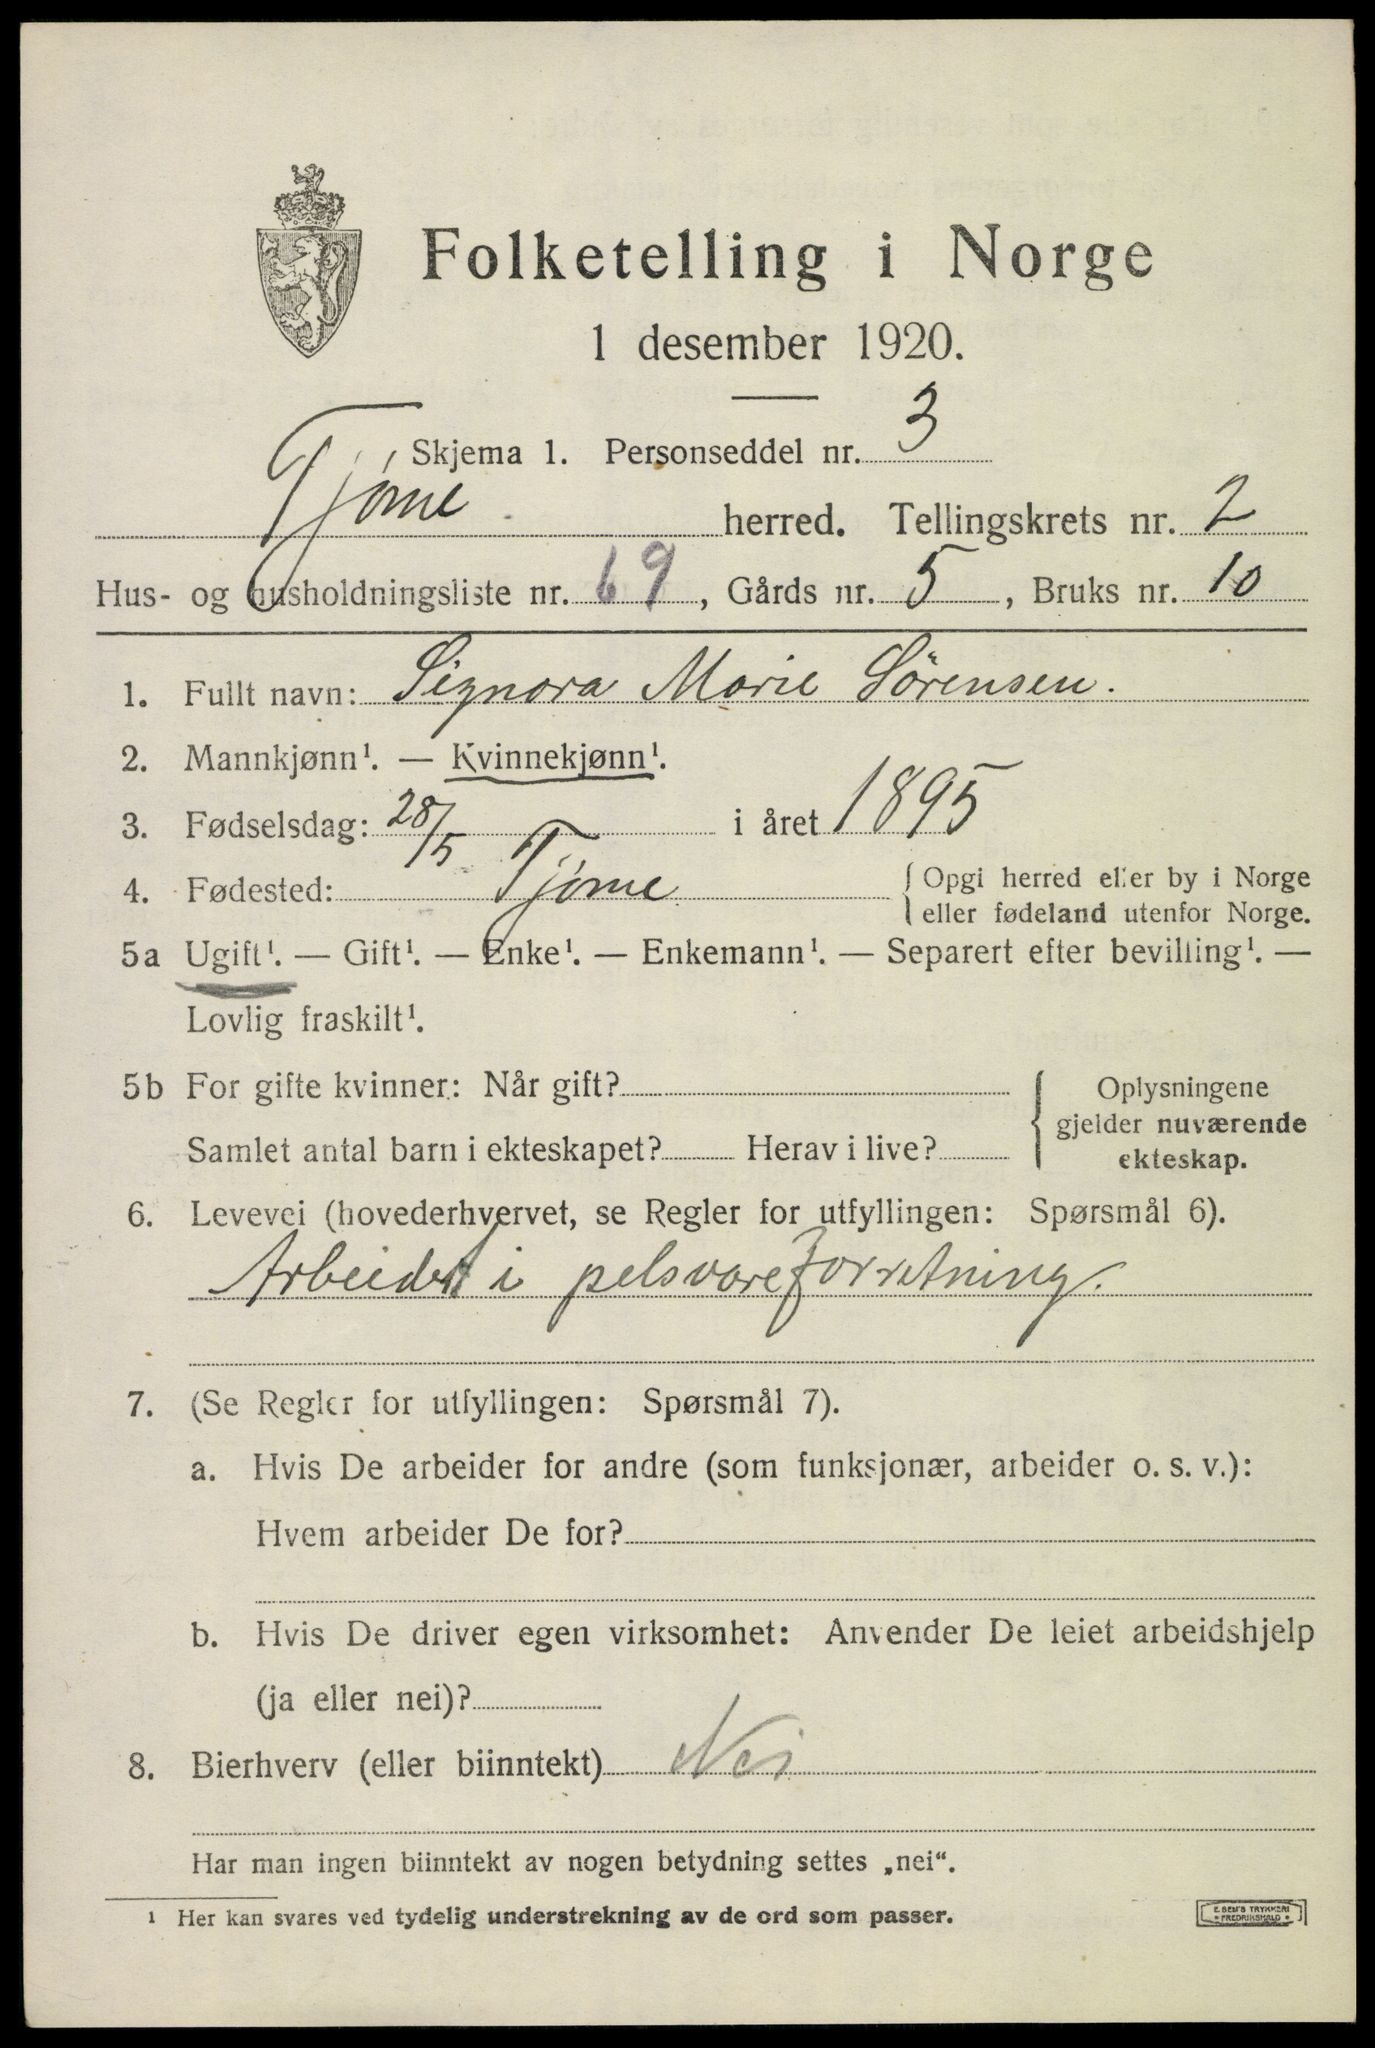 Folketelling i Norge
1 desember 1920.
Skjema 1. Personseddel nr. 3
Tjøme herred. Tellingskrets nr. 2
Hus- og husholdningsliste nr. 69, Gårds nr. 5, Bruks nr. 10
1. Fullt navn: Signora Marie Sörensen.
2. Mannkjønn¹. — Kvinnekjønn¹.
3. Fødselsdag: 28/5 i året 1895
4. Fødested: Tjøme { Opgi herred eller by i Norge
eller fødeland utenfor Norge.
5a Ugift¹. — Gift¹. — Enke¹. — Enkemann¹. — Separert efter bevilling¹. —
Lovlig fraskilt¹.
5b For gifte kvinner: Når gift? { Oplysningene
gjelder nuværende
Samlet antal barn i ekteskapet? Herav i live? ekteskap.
6. Levevei (hovederhvervet, se Regler for utfyllingen: Spørsmål 6).
i pelsvareforretning.
7. (Se Regler for utfyllingen: Spørsmål 7).
a. Hvis De arbeider for andre (som funksjonær, arbeider o. s. v.):
Hvem arbeider De for?
b. Hvis De driver egen virksomhet: Anvender De leiet arbeidshjelp
(ja eller nei)?
8. Bierhverv (eller biinntekt) Nei
Har man ingen biinntekt av nogen betydning settes „nei“.
¹ Her kan svares ved tydelig understrekning av de ord som passer.
E. SEM'S TRYKKERI
• FREDRIKSHALD •